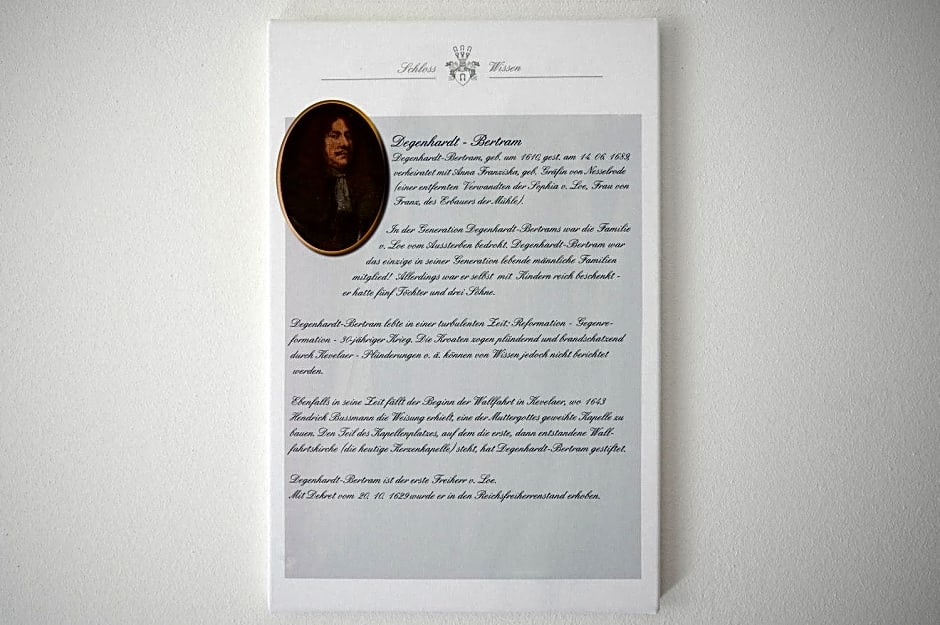 Schloss Wissen
Degenhardt - Bertram
Degenhardt-Bertram, geb. um 1610, gest. am 14. 06. 1689,
verheiratet mit Anna Franziska, geb. Gräfin von Nesselrode
(einer entfernten Verwandten der Sophia v. Loe, Frau von
Franz, des Erbauers der Mühle).
In der Generation Degenhardt-Bertrams war die Familie
v. Loe vom Aussterben bedroht. Degenhardt-Bertram war
das einzige in seiner Generation lebende männliche Familien
mitglied! Allerdings war er selbst mit Kindern reich beschenkt -
er hatte fünf Töchter und drei Söhne.
Degenhardt-Bertram lebte in einer turbulenten Zeit: Reformation - Gegenre-
formation - 30-jähriger Krieg. Die Kroaten zogen plündernd und brandschatzend
durch Kevelaer - Plünderungen o. ä. können von Wissen jedoch nicht berichtet
werden.
Ebenfalls in seine Zeit fällt der Beginn der Wallfahrt in Kevelaer, wo 1643
Hendrick Bussmann die Weisung erhielt, eine der Muttergottes geweihte Kapelle zu
bauen. Den Teil des Kapellenplatzes, auf dem die erste, dann entstandene Wall-
fahrtskirche (die heutige Kerzenkapelle) steht, hat Degenhardt-Bertram gestiftet.
Degenhardt-Bertram ist der erste Freiherr v. Loe.
Mit Dekret vom 20. 10. 1629 wurde er in den Reichsfreiherrenstand erhoben.